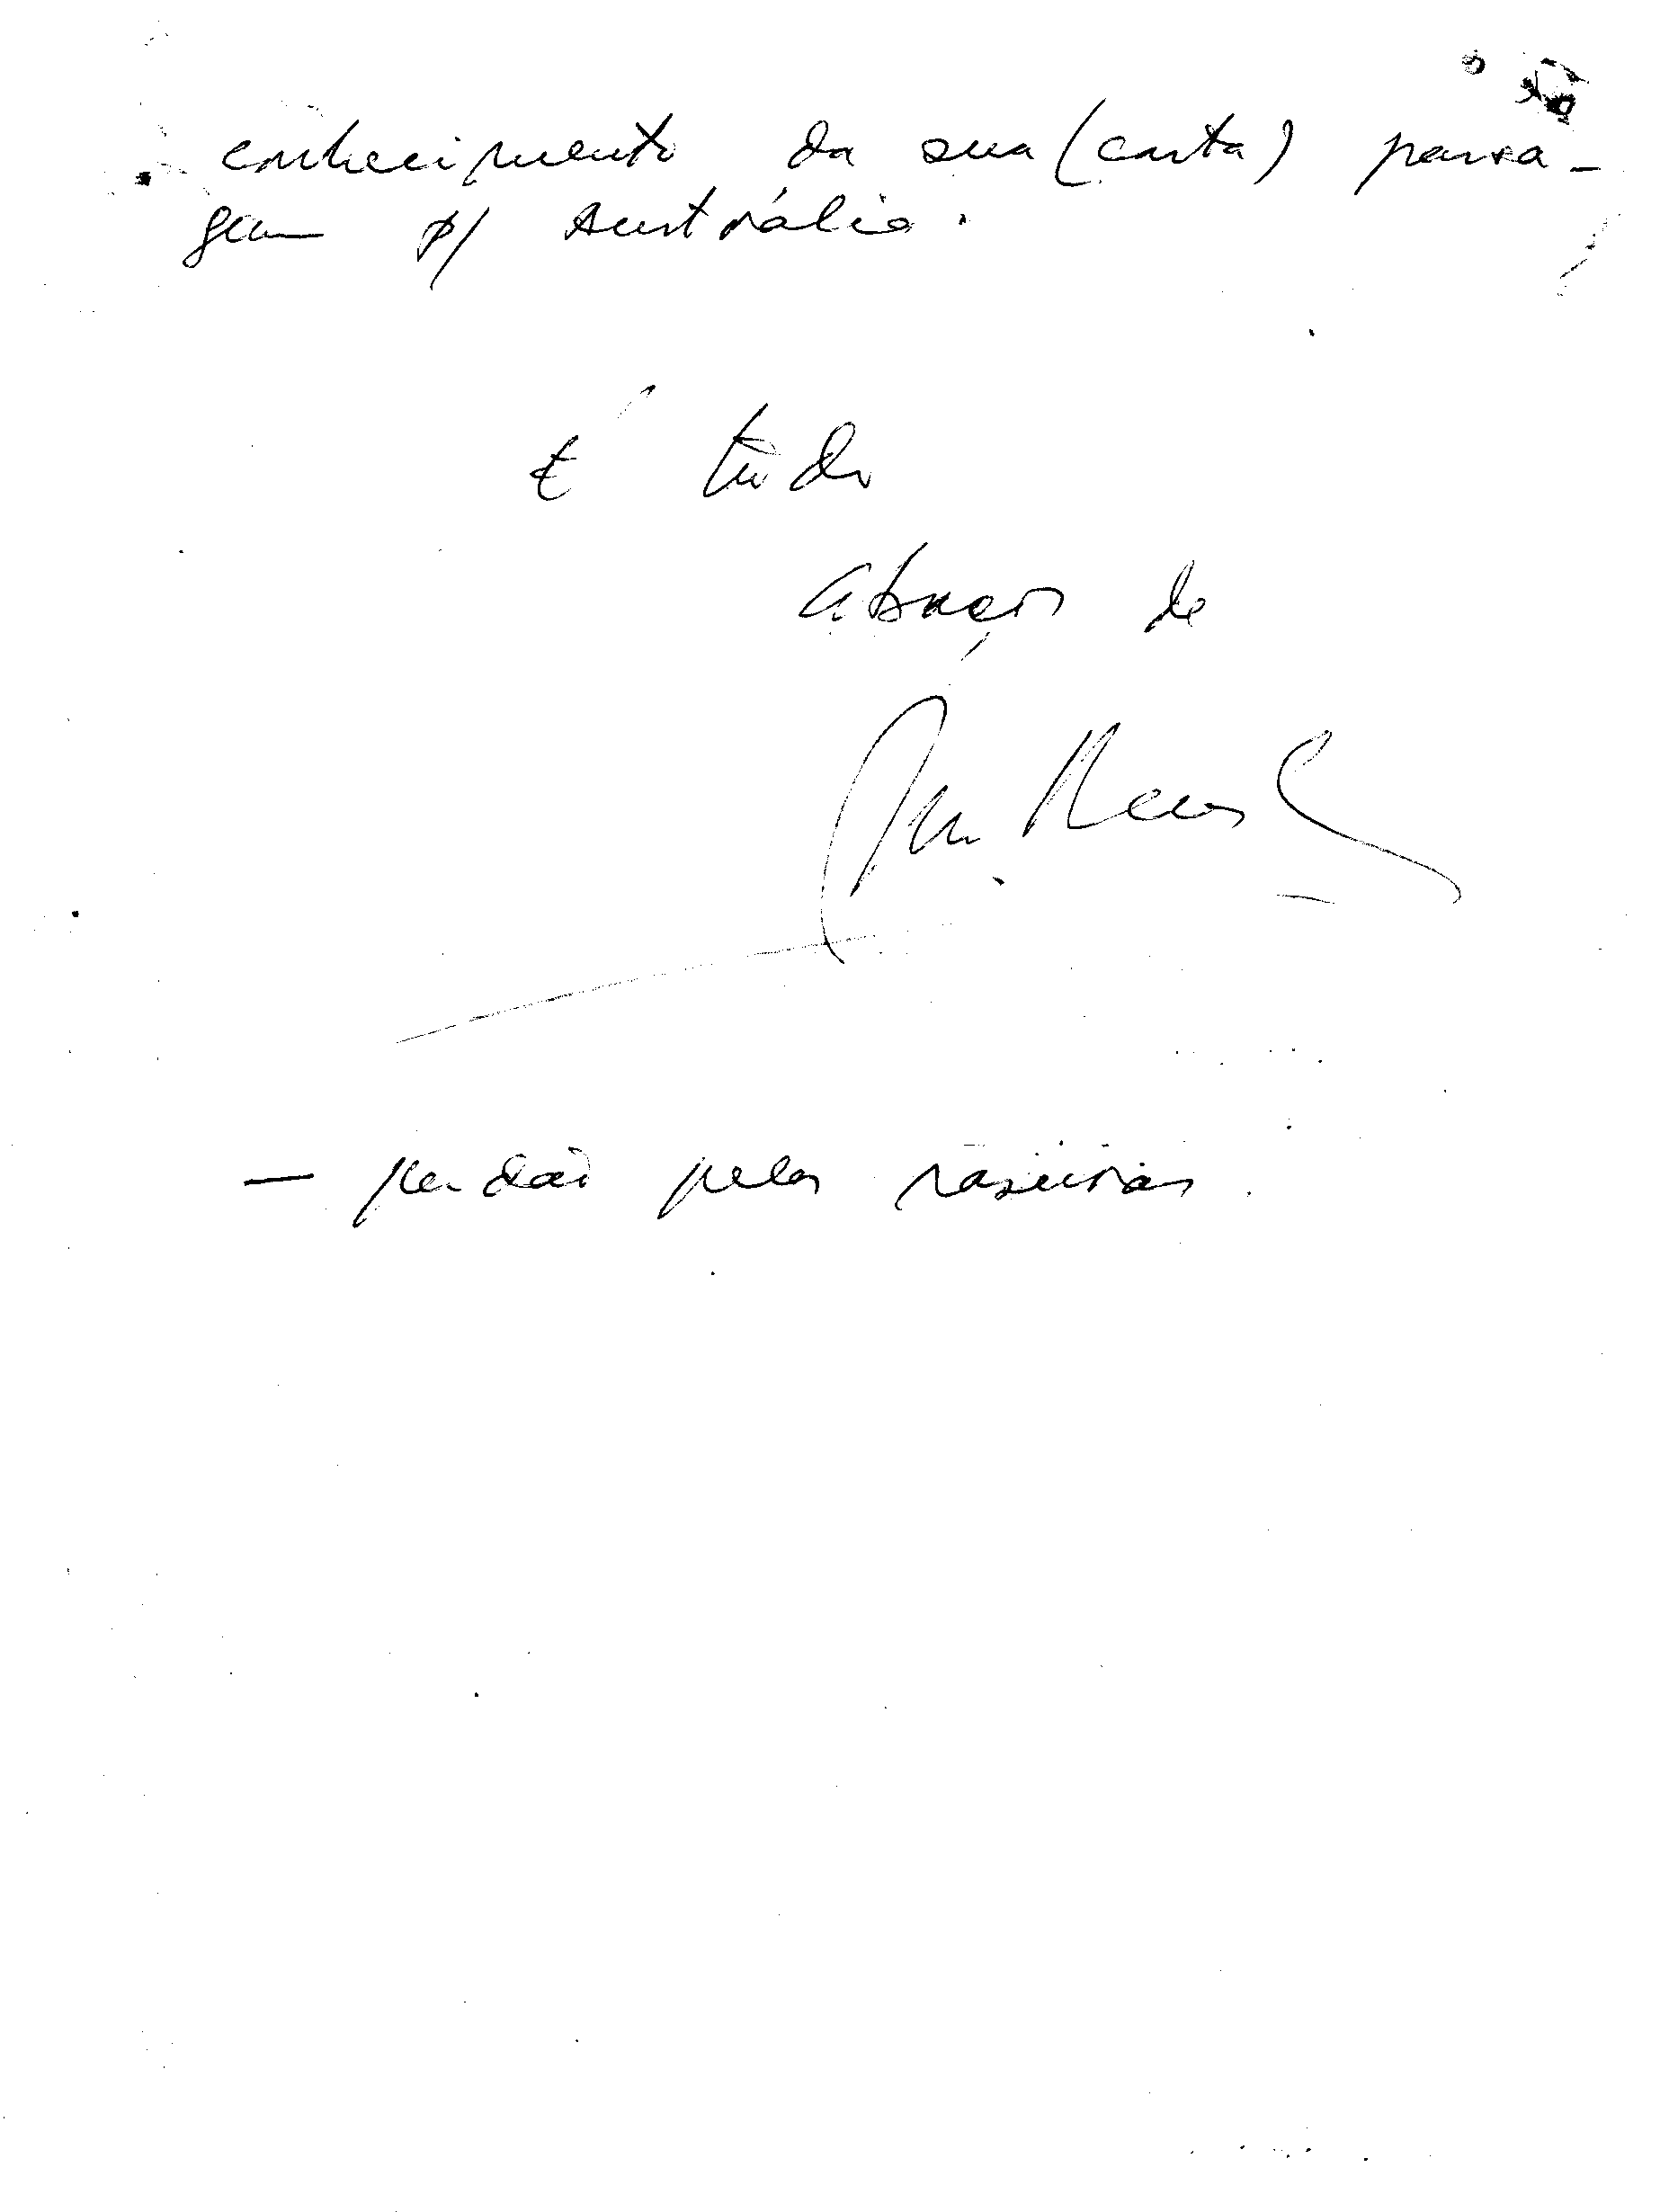 conhecimento da sua (carta) passa-
gem p/ Austrália.
É tudo
abraços de
— perdão pelas rasuras.